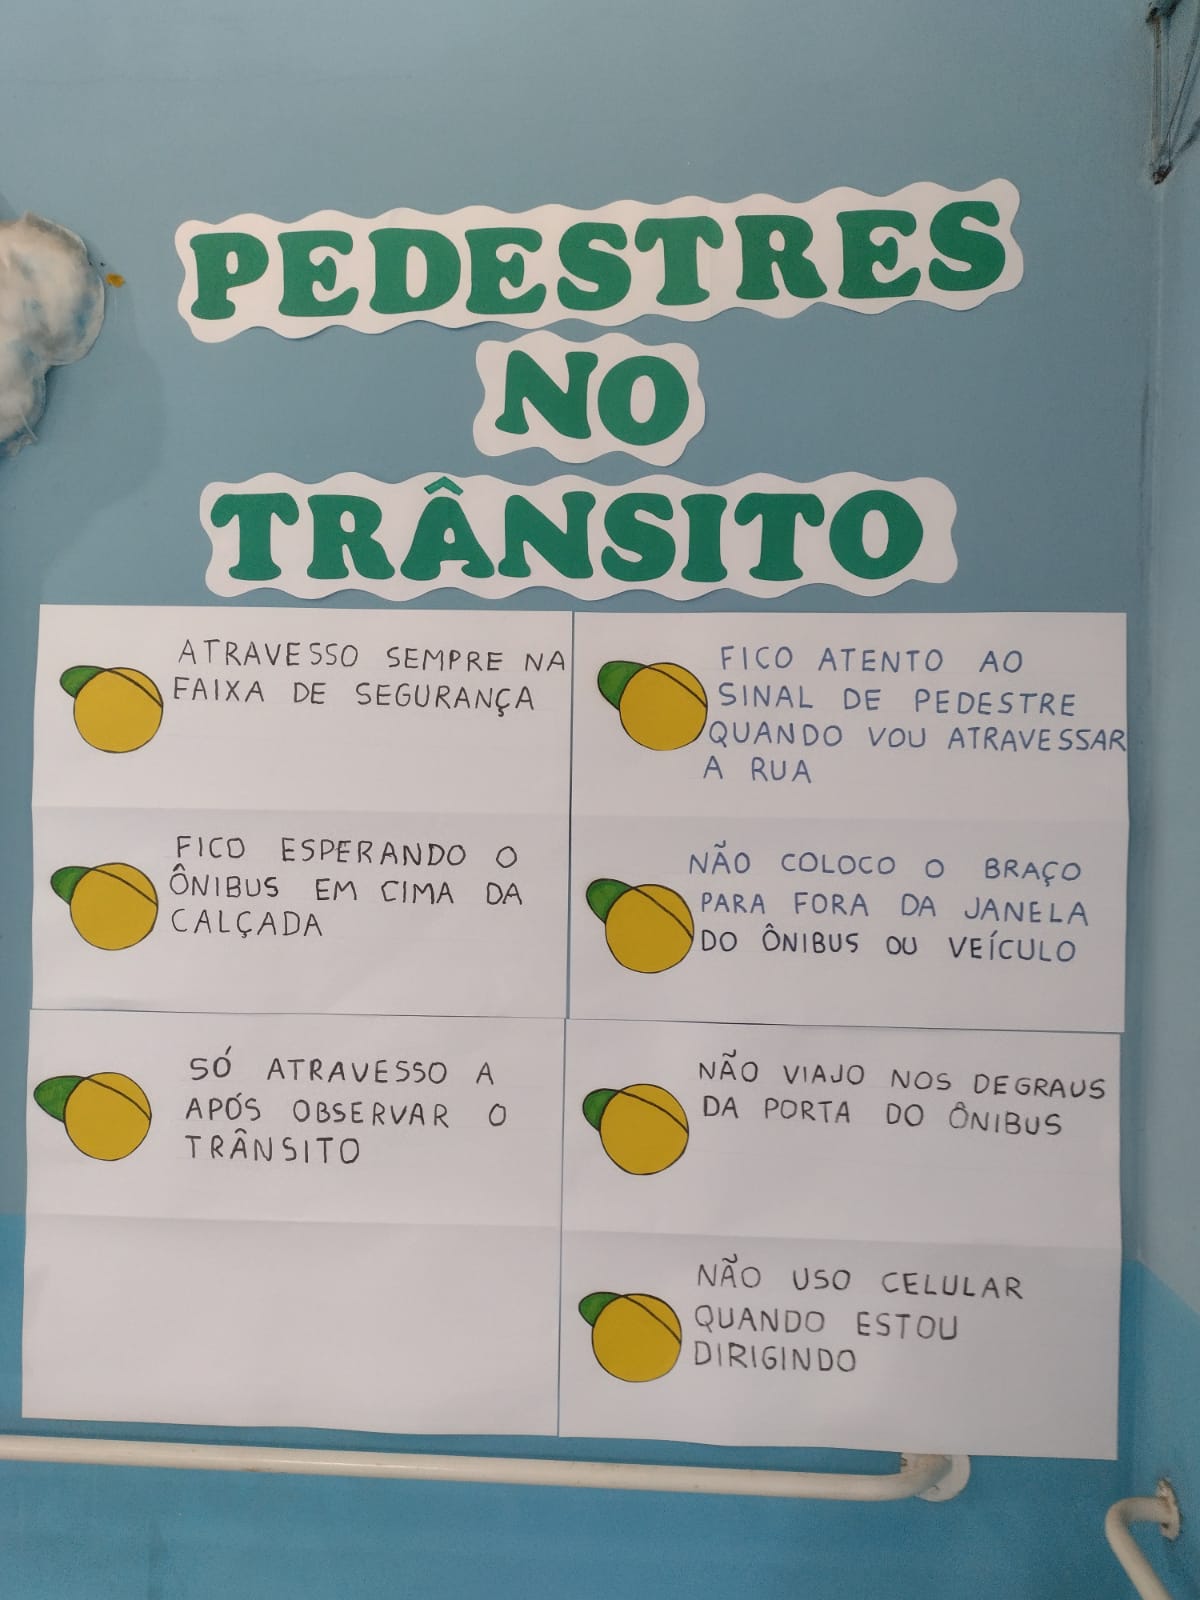 PEDESTRES
NO
TRÂNSITO
ATRAVESSO SEMPRE NA
FAIXA DE SEGURANÇA
FICO ESPERANDO O
ÔNIBUS EM CIMA DA
CALÇADA
SÓ ATRAVESSO A
APÓS OBSERVAR O
TRÂNSITO
FICO ATENTO AO
SINAL DE PEDESTRE
QUANDO VOU ATRAVESSAR
A RUA
NÃO COLOCO O BRAÇO
PARA FORA DA JANELA
DO ÔNIBUS OU VEÍCULO
NÃO VIAJO NOS DEGRAUS
DA PORTA DO ÔNIBUS
NÃO USO CELULAR
QUANDO ESTOU
DIRIGINDO